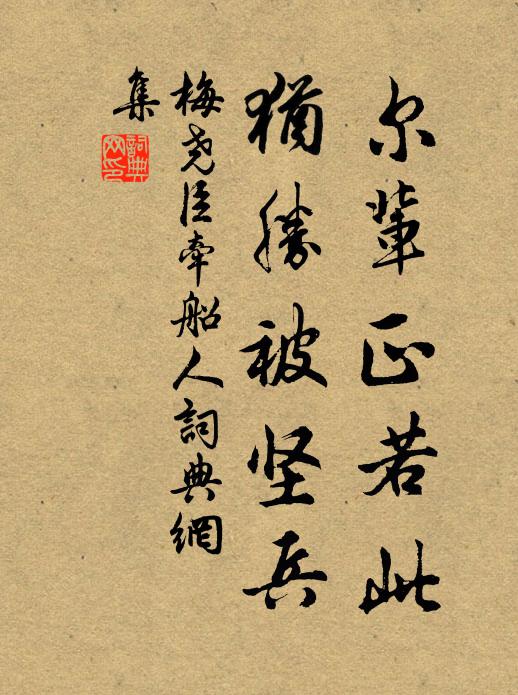 尔辈正若此
犹胜被坚兵
梅尧臣牵船人词典網
集
詞典
网印